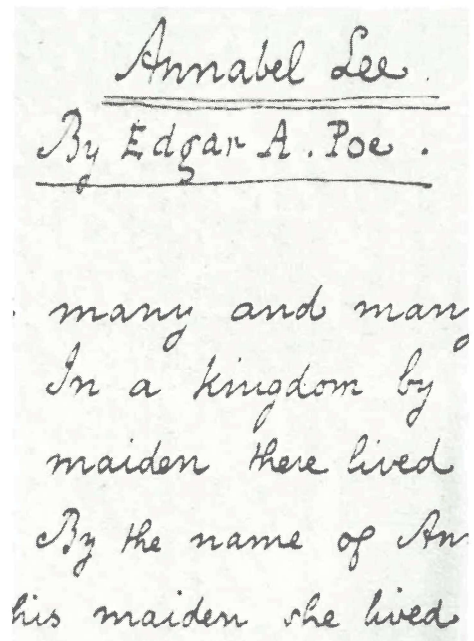 Annabel Lee.
By Edgar A. Poe.
many and many
In a kingdom by
maiden there lived
By the name of An
his maiden she lived